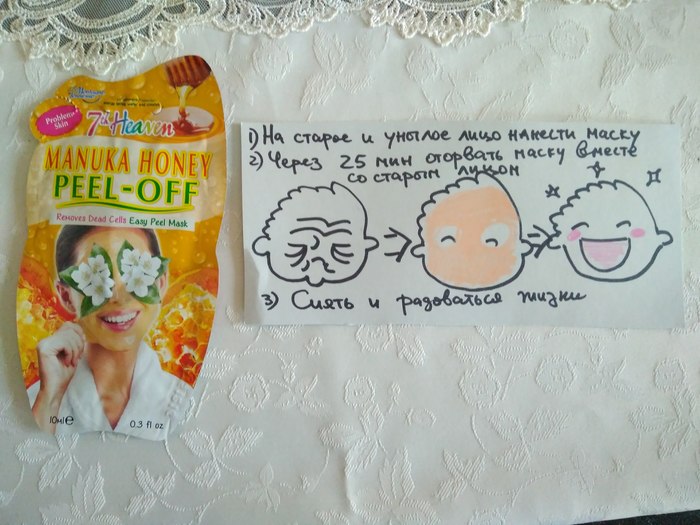 Montagne Jeunesse
Problem
Skin
7th Heaven
MANUKA HONEY
PEEL-OFF
Removes Dead Cells Easy Peel Mask
10мl e
0.3 fl oz
1) На старое и унылое лицо нанести маску
2) Через 25 мин оторвать маску вместе
со старым лицом
3) Сиять и радоваться жизни